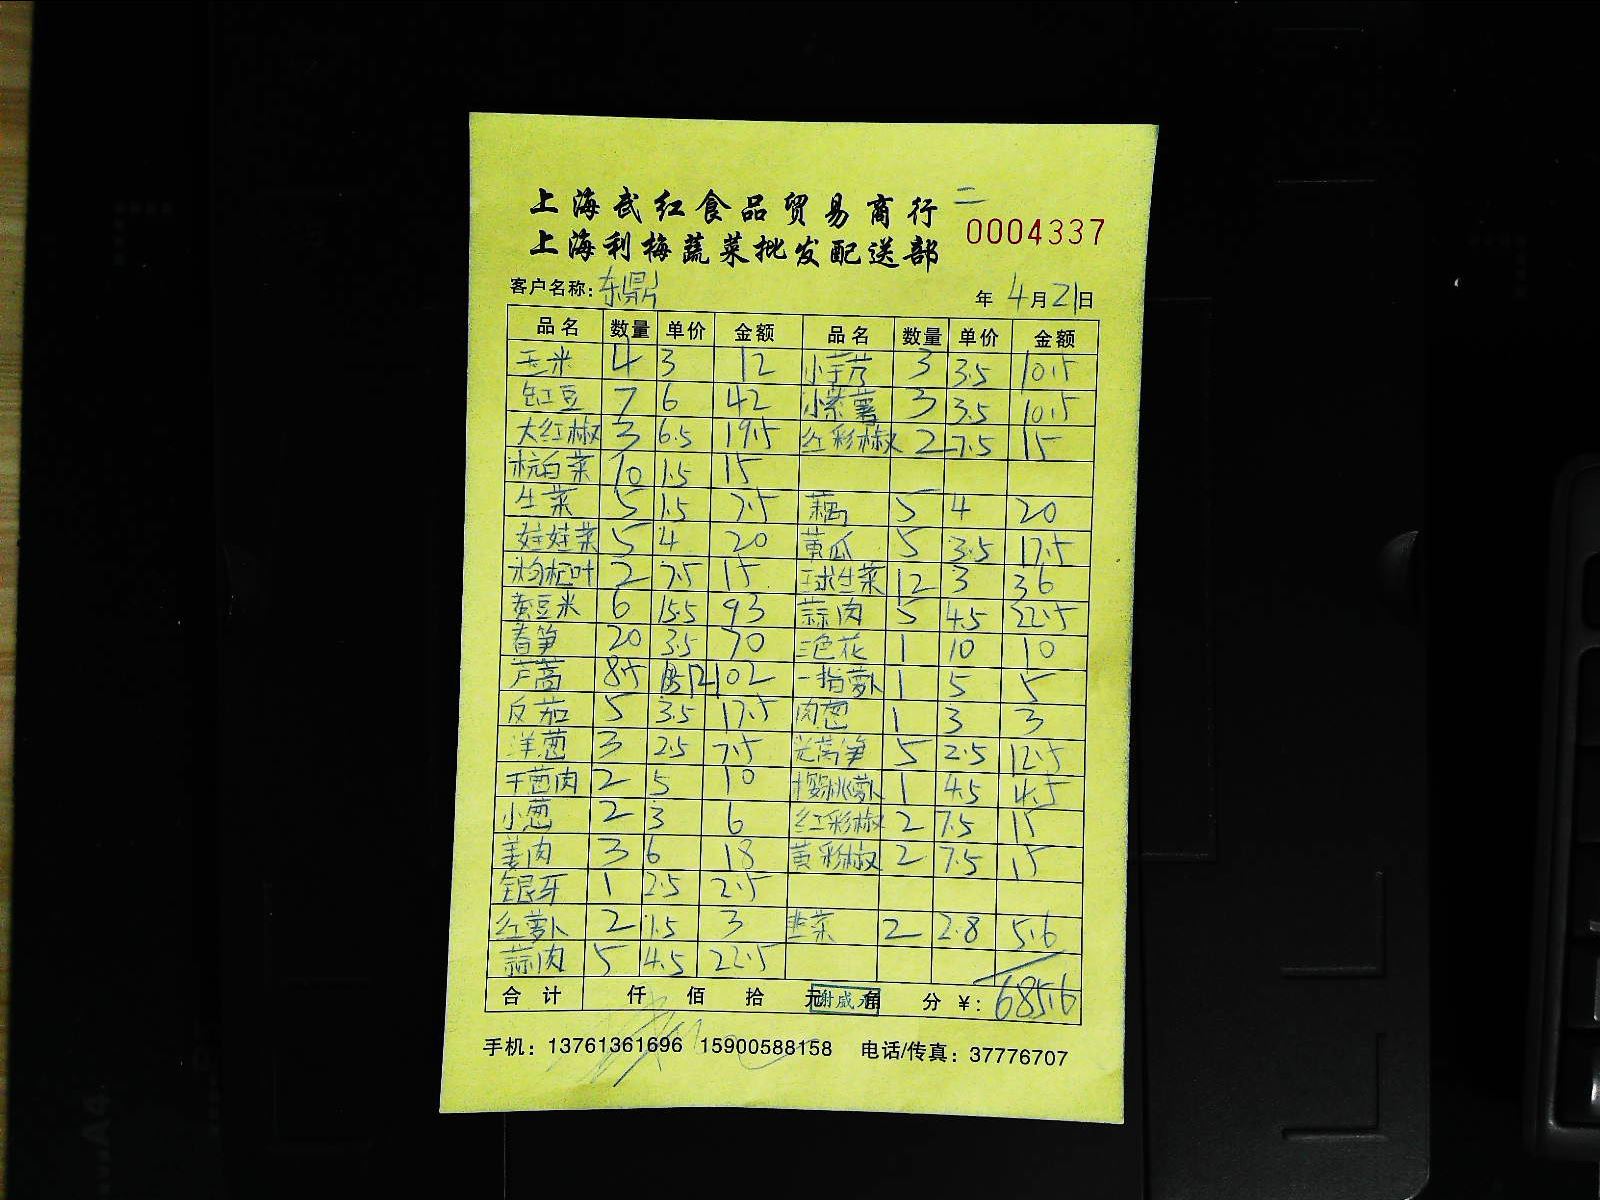 上海武红食品贸易商行 二
上海利梅蔬菜批发配送部 0004337
客户名称: 东鼎 年 4月21日
品名 数量 单价 金额 品名 数量 单价 金额
玉米 4 3 12 小芋艿 3 3.5 10.5
豇豆 7 6 42 小紫薯 3 3.5 10.5
大红椒 3 6.5 19.5 红彩椒 2 7.5 15
杭白菜 10 1.5 15
生菜 5 1.5 7.5 藕 5 4 20
娃娃菜 5 4 20 黄瓜 5 3.5 17.5
枸杞叶 2 7.5 15 球生菜 12 3 36
蚕豆米 6 15.5 93 蒜肉 5 4.5 22.5
春笋 20 3.5 70 三色花 1 10 10
芦蒿 8.5 12 102 一指萝卜 1 5 5
反茄 5 3.5 17.5 肉葱 1 3 3
洋葱 3 2.5 7.5 光莴笋 5 2.5 12.5
干茴肉 2 5 10 樱桃萝卜 1 4.5 4.5
小葱 2 3 6 红彩椒 2 7.5 15
姜肉 3 6 18 黄彩椒 2 7.5 15
银牙 1 2.5 2.5
红萝卜 2 1.5 3 韭菜 2 2.8 5.6
蒜肉 5 4.5 22.5
合计 仟 佰 拾 元 角 分 ¥: 685.6
手机: 13761361696 15900588158 电话/传真: 37776707